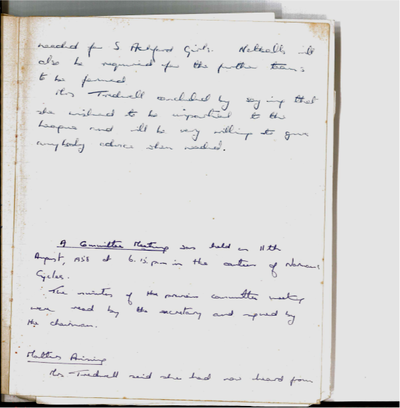 needed for 5 Ashford Girls. Netballs will
also be required for the further teams
to be formed
Mrs Tredwell concluded by saying that
she wished to be impartial to the
leagues and will be very willing to give
anybody advice when needed.
A Committee Meeting was held on 11th
August, 1958 at 6.15 pm in the canteen of Norman
Cycles.
The minutes of the previous committee meeting
were read by the secretary and signed by
the chairman.
Matters Arising
Mrs Tredwell said she had now heard from